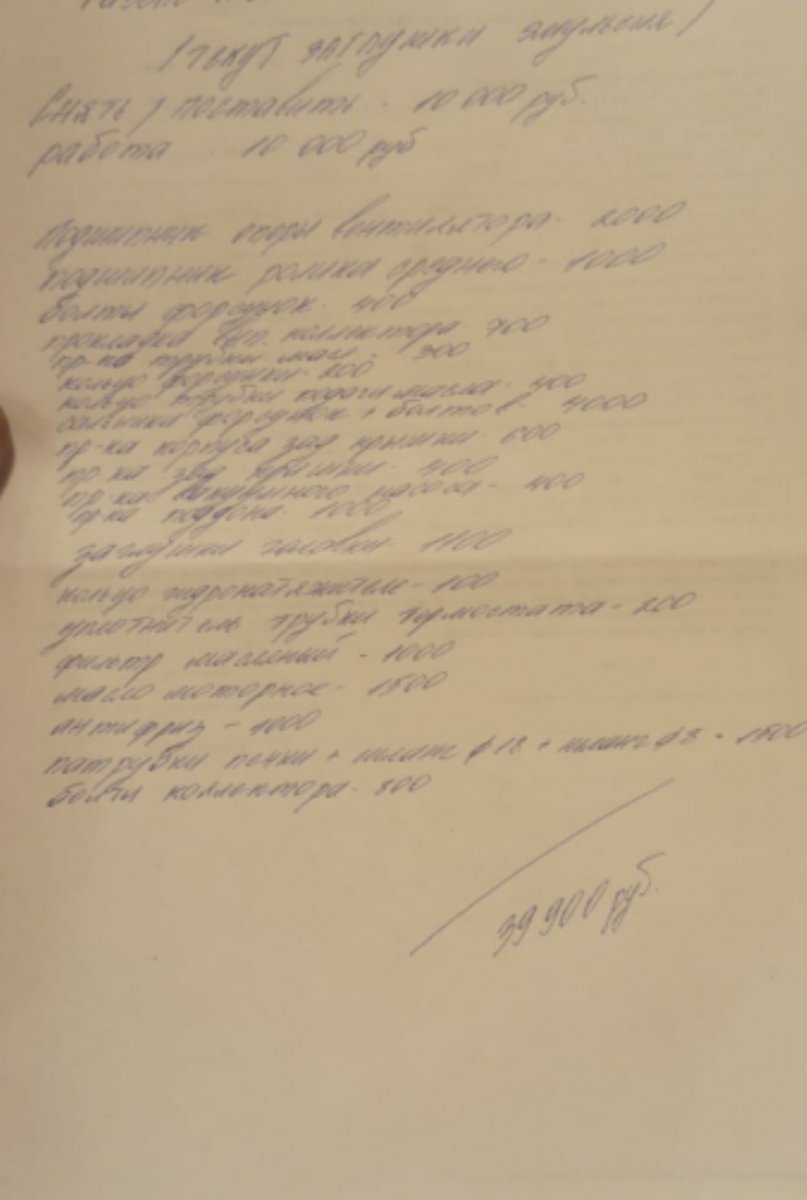 /текут заглушки эмульсия/
Снять / поставить - 10 000 руб.
работа - 10 000 руб
Подшипник опоры вентилятора - 2000
подшипник ролика среднего - 1000
болты форсунок - 400
прокладка вып. коллектора 700
пр-ка трубки масл - 300
кольцо форсунки - 200
кольцо трубки подачи масла - 400
сальники форсунок + болтов - 4000
пр-ка корпуса зад. крышки - 600
пр-ка зад крышки - 400
пр-ка вакуумного насоса - 400
пр-ка поддона - 1000
заглушки головки - 1100
кольцо гидронатяжителя - 100
уплотнитель трубки термостата - 200
фильтр масляный - 1000
масло моторное - 1500
антифриз - 1000
патрубки печки + шланг ф 18 + шланг ф 8 - 1500
болты коллектора - 800
39 900 руб.